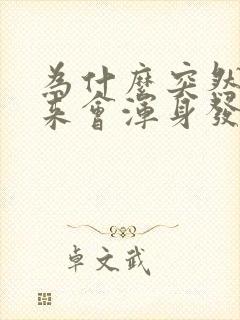 為什麼突然
來會渾身發
卓文武